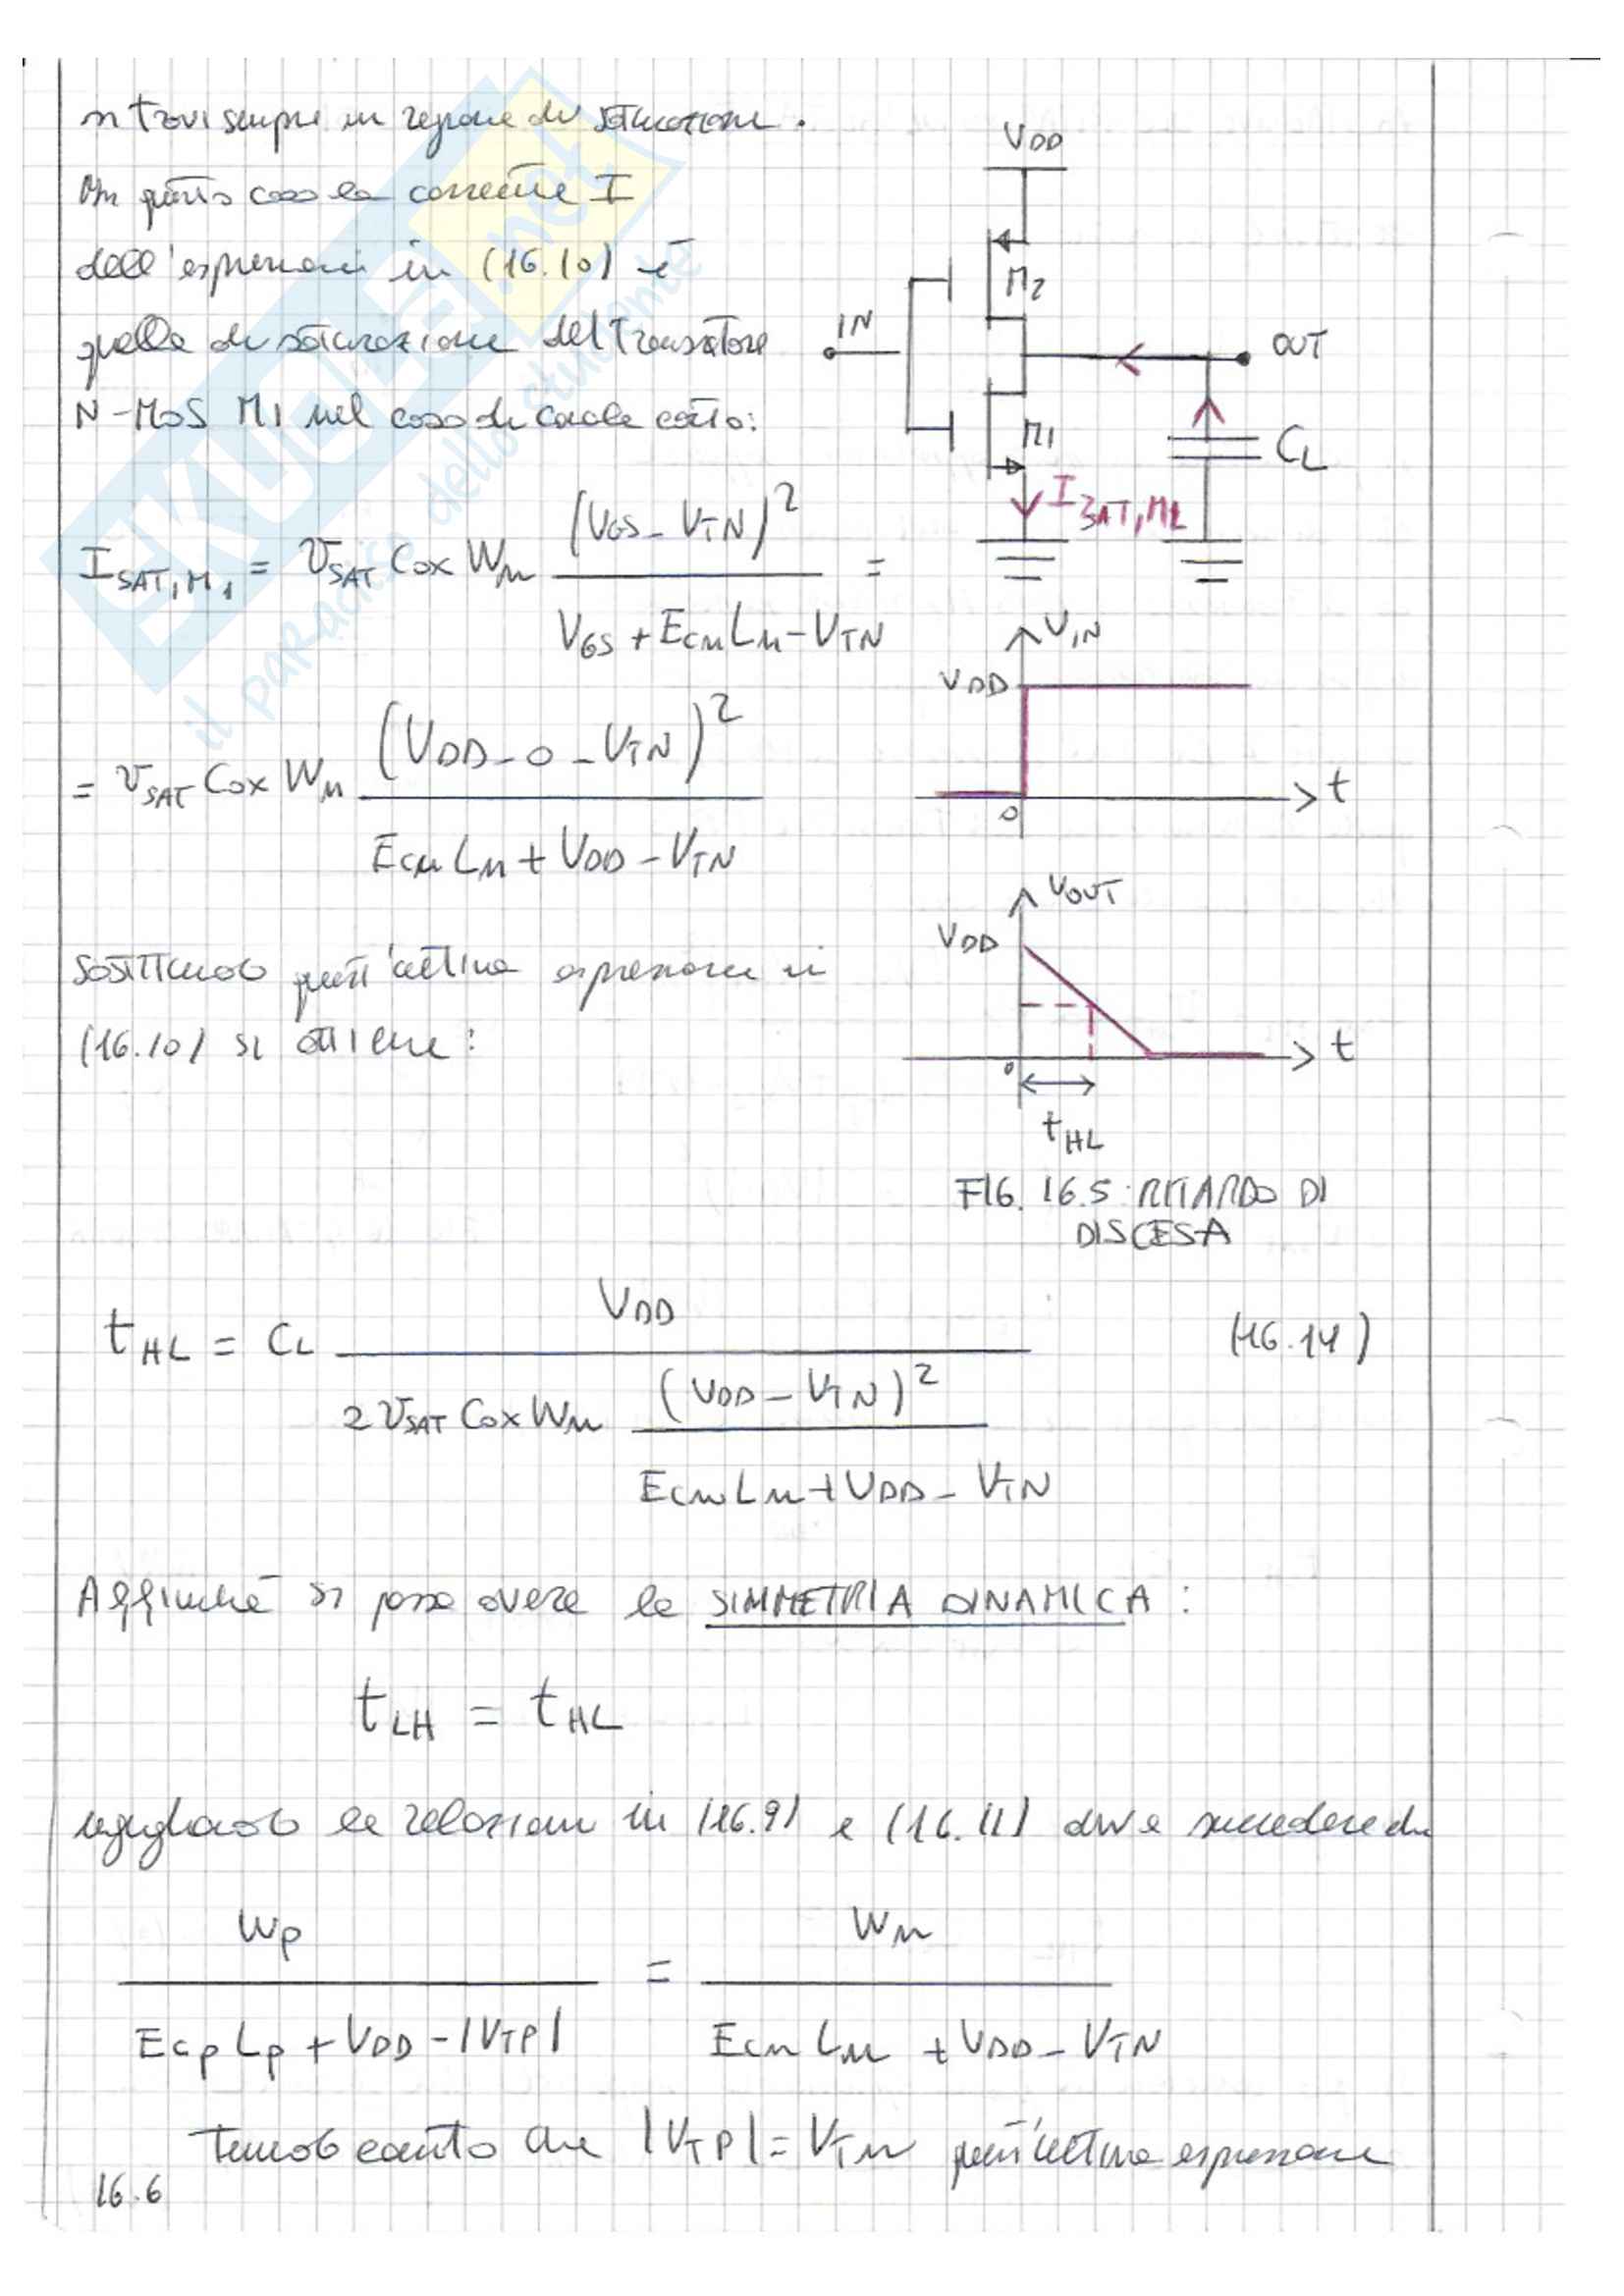 si trovi sempre in regione di saturazione.
In questo caso la corrente I
dell'espressione in (16.10) è
quella di saturazione del transistore
N-MOS M1 nel caso di canale corto:
I_SAT,M1 = v_SAT Cox Wn (VGS - VTN)^2 / (VGS + Ecn Ln - VTN) =
= v_SAT Cox Wn (VDD - 0 - VTN)^2 / (Ecn Ln + VDD - VTN)
Sostituendo quest'ultima espressione in
(16.10) si ottiene:
VDD
M2
IN
OUT
M1
CL
I_SAT,M1
VIN
VDD
t
0
VOUT
VDD
t
0
tHL
FIG. 16.5: RITARDO DI
DISCESA
tHL = CL VDD / (2 v_SAT Cox Wn (VDD - VTN)^2 / (Ecn Ln + VDD - VTN)) (16.14)
Affinché si possa avere la SIMMETRIA DINAMICA:
tLH = tHL
uguagliando le relazioni in (16.9) e (16.11) deve succedere che
Wp / (Ecp Lp + VDD - |VTP|) = Wn / (Ecn Ln + VDD - VTN)
tenendo conto che |VTP| = VTn quest'ultima espressione
16.6
SKUOLA.net
il paradiso dello studente